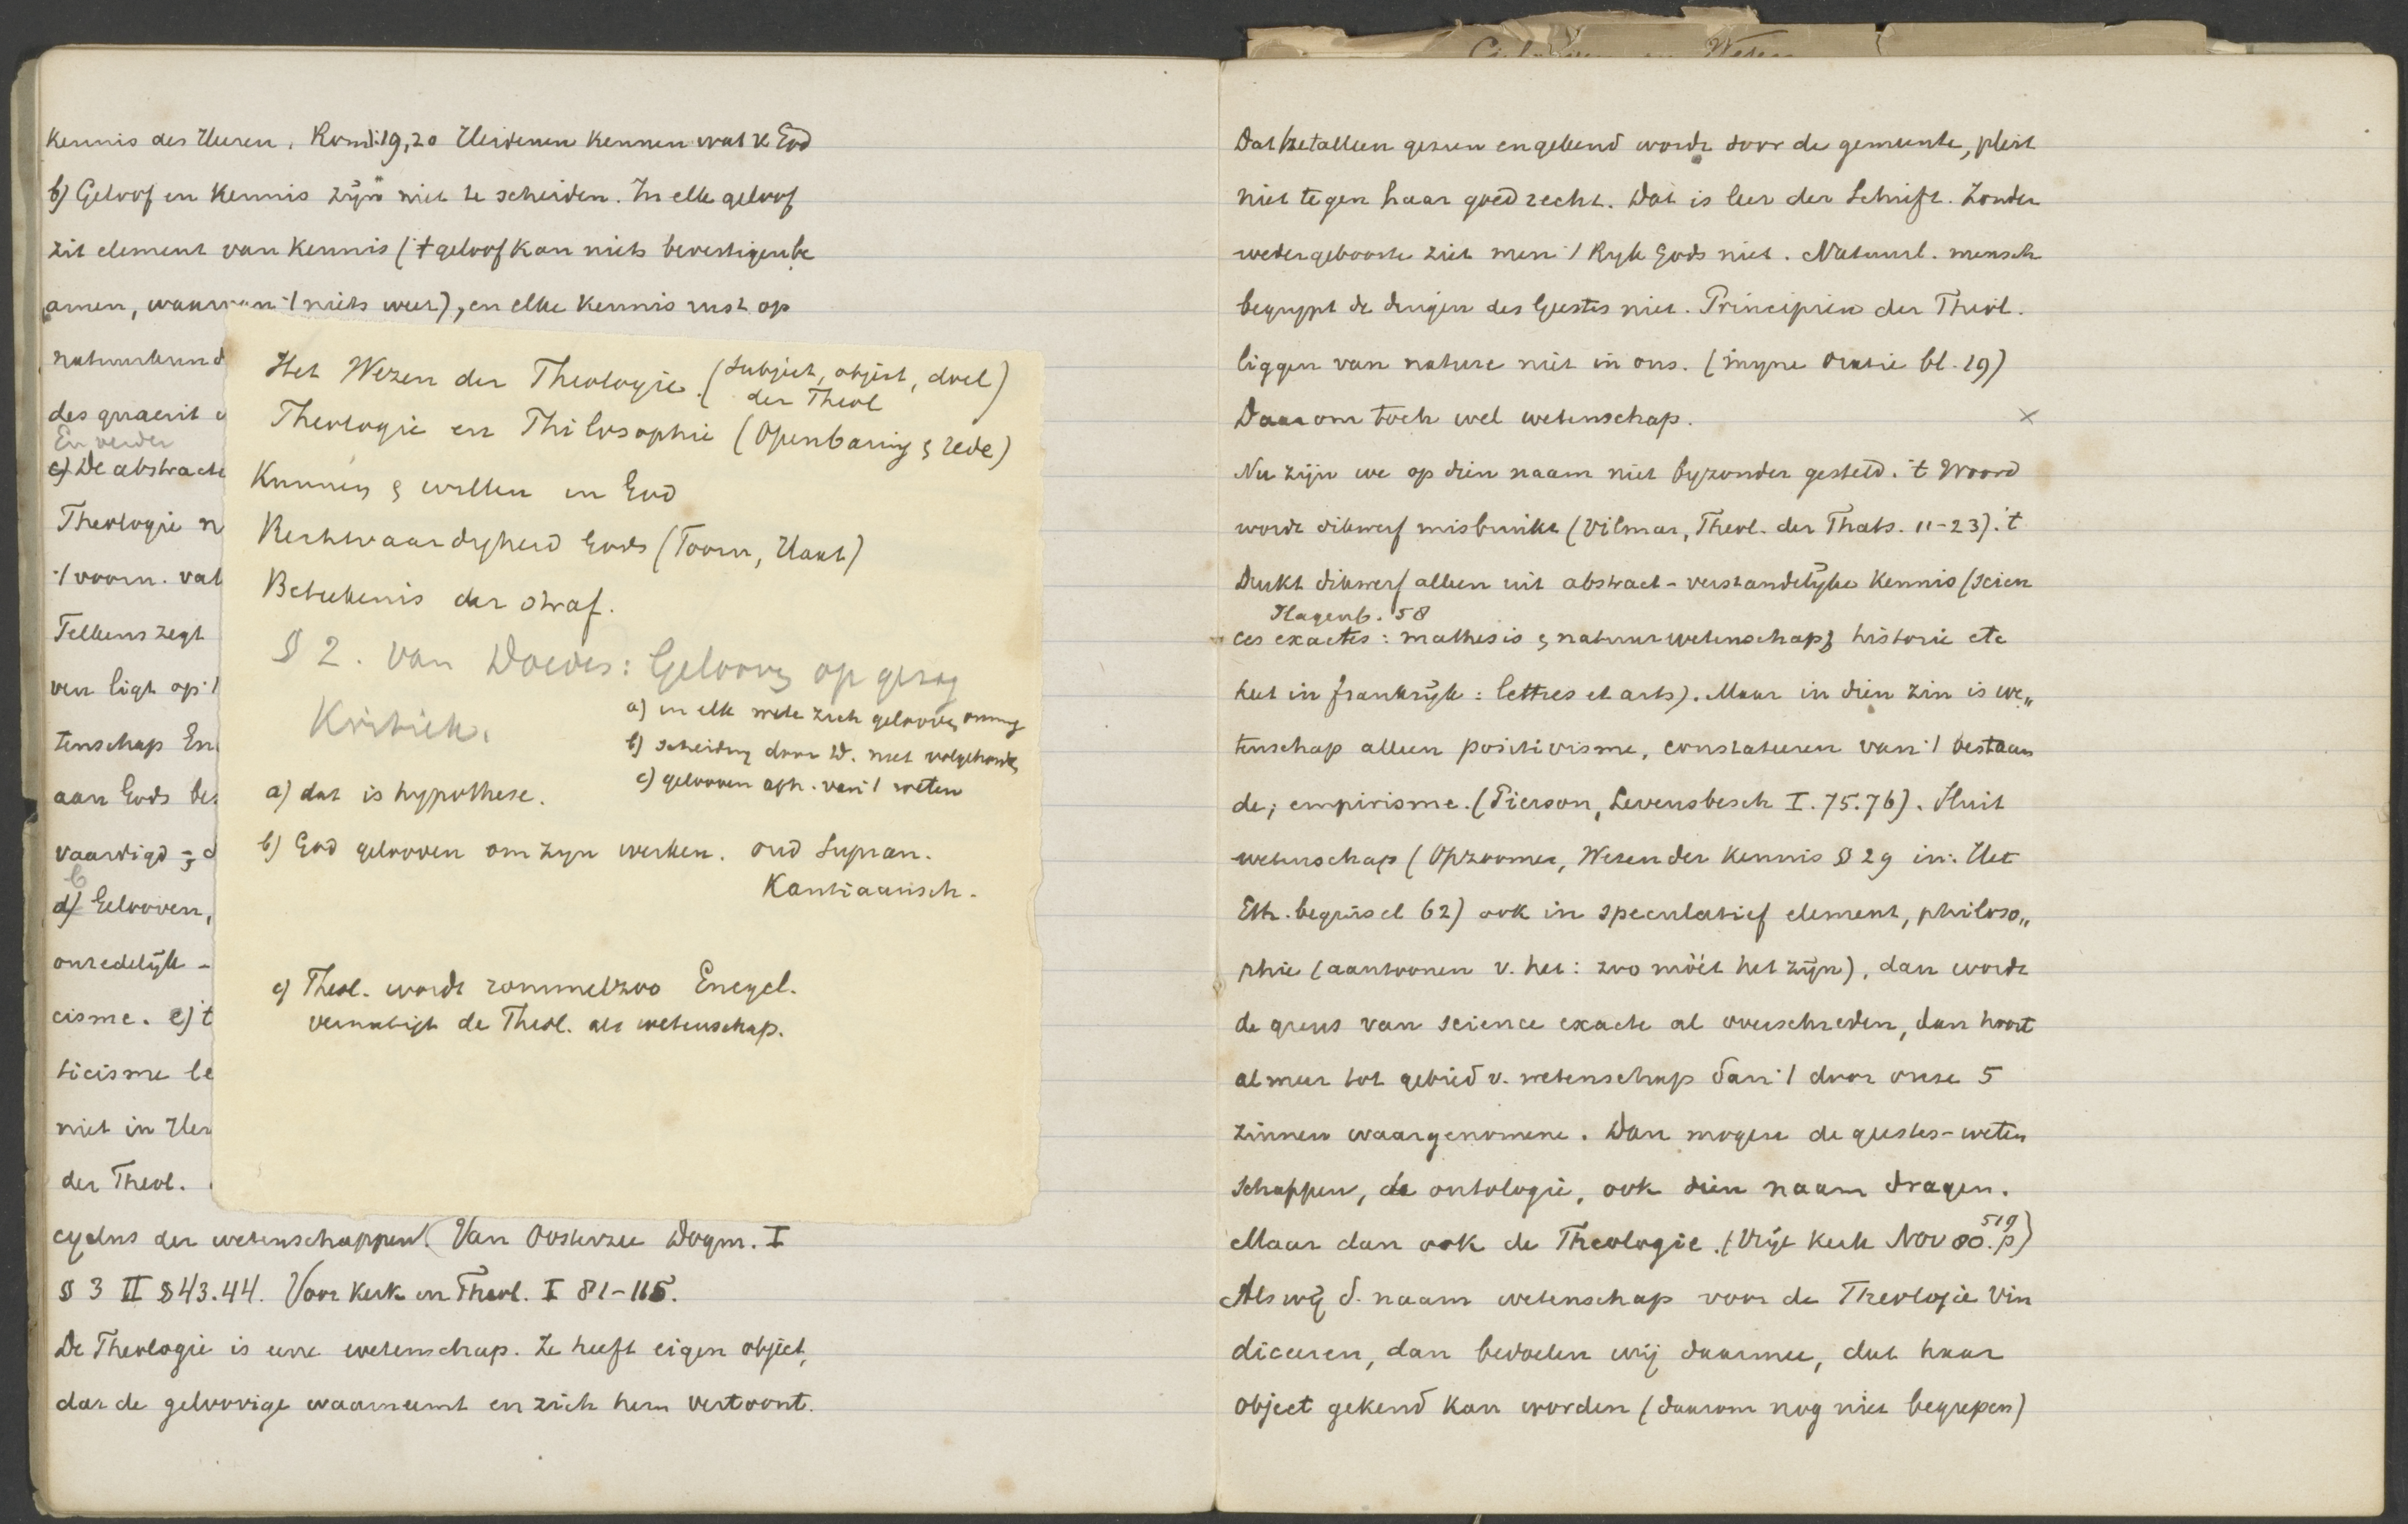 kennis des Heeren. Rom 1:19,20 Heidenen kennen wat v God
b) Geloof en Kennis zijn niet te scheiden. In elk geloof
zit element van Kennis ('t geloof kan niets bevestigen be
amen, waarvan 't niets weet), en elke Kennis rust op
natuurkund
des quaerit
En verder
c) De abstracte
Theologie n
't voorn. vat
Tellens zegt
ven ligt op 't
tenschap En
aan Gods bes
vaardigd
b
d) Gelooven,
onzedelijk -
cisme. e) 't
ticisme le
niet in Her
der Theol.
cyclus der wetenschappen. (Van Oosterzee Dogm. I
§ 3 II § 43.44. Voor Kerk en Theol. I 81-115.
De Theologie is eene wetenschap. Ze heeft eigen object,
dat de geloovige waarneemt en zich hem vertoont.
Het Wezen der Theologie. (Subject, object, doel)
der Theol
Theologie en Philosophie (Openbaring & rede)
Kennen & willen in God
Rechtvaardigheid Gods (Toorn, Haat)
Beteekenis der straf.
§ 2. van Doedes: Geloov op gezag
Kritiek.
a) in elk wete zich geloov
b) scheiding door D. niet volgehoud
c) gelooven afh. van 't weten
a) dat is hypothese.
b) God gelooven om zijn werken. oud Supran.
Kantiaansch.
c) Theol. wordt rommelzoo Encycl.
vernietigt de Theol. als wetenschap.
Dat het alleen gezien en gekend wordt door de gemeente, pleit
niet tegen haar goed recht. Dat is leer der Schrift. Zonder
wedergeboorte ziet men 't Rijk Gods niet. Natuurl. mensch
begrypt de dingen des Geestes niet. Principien der Theol.
liggen van nature niet in ons. (mijne Oratie bl. 19)
Daarom toch wel wetenschap. ×
Nu zijn we op dien naam niet byzonder gesteld. 't Woord
wordt dikwerf misbruikt (Vilmar, Theol. der Thats. 11-23). 't
Drukt dikwerf alleen uit abstract-verstandelijke Kennis (scien
Hagenb. 58
ces exactes: mathesis & natuurwetenschap; historie etc
heet in frankrijk: lettres et arts). Maar in dien zin is we„
tenschap alleen positivisme, constateren van 't bestaan
de; empirisme. (Pierson, Levensbesch I. 75.76). Sluit
wetenschap (Opzoomer, Wezen der Kennis § 29 in: Het
Eth. beginsel 62) ook in speculatief element, philoso„
phie (aantoonen v. het: zoo móét het zijn), dan wordt
de grens van science exacte al overschreden, dan hoort
al meer tot gebied v. wetenschap dan 't door onze 5
zinnen waargenomene. Dan mogen de geestes-weten
schappen, de ontologie, ook dien naam dragen.
Maar dan ook de Theologie. (Vrije Kerk Nov 80. p 519)
Als wij d. naam wetenschap voor de Theologie vin
diceeren, dan bedoelen wij daarmee, dat haar
object gekend kan worden (daarom nog niet begrepen)